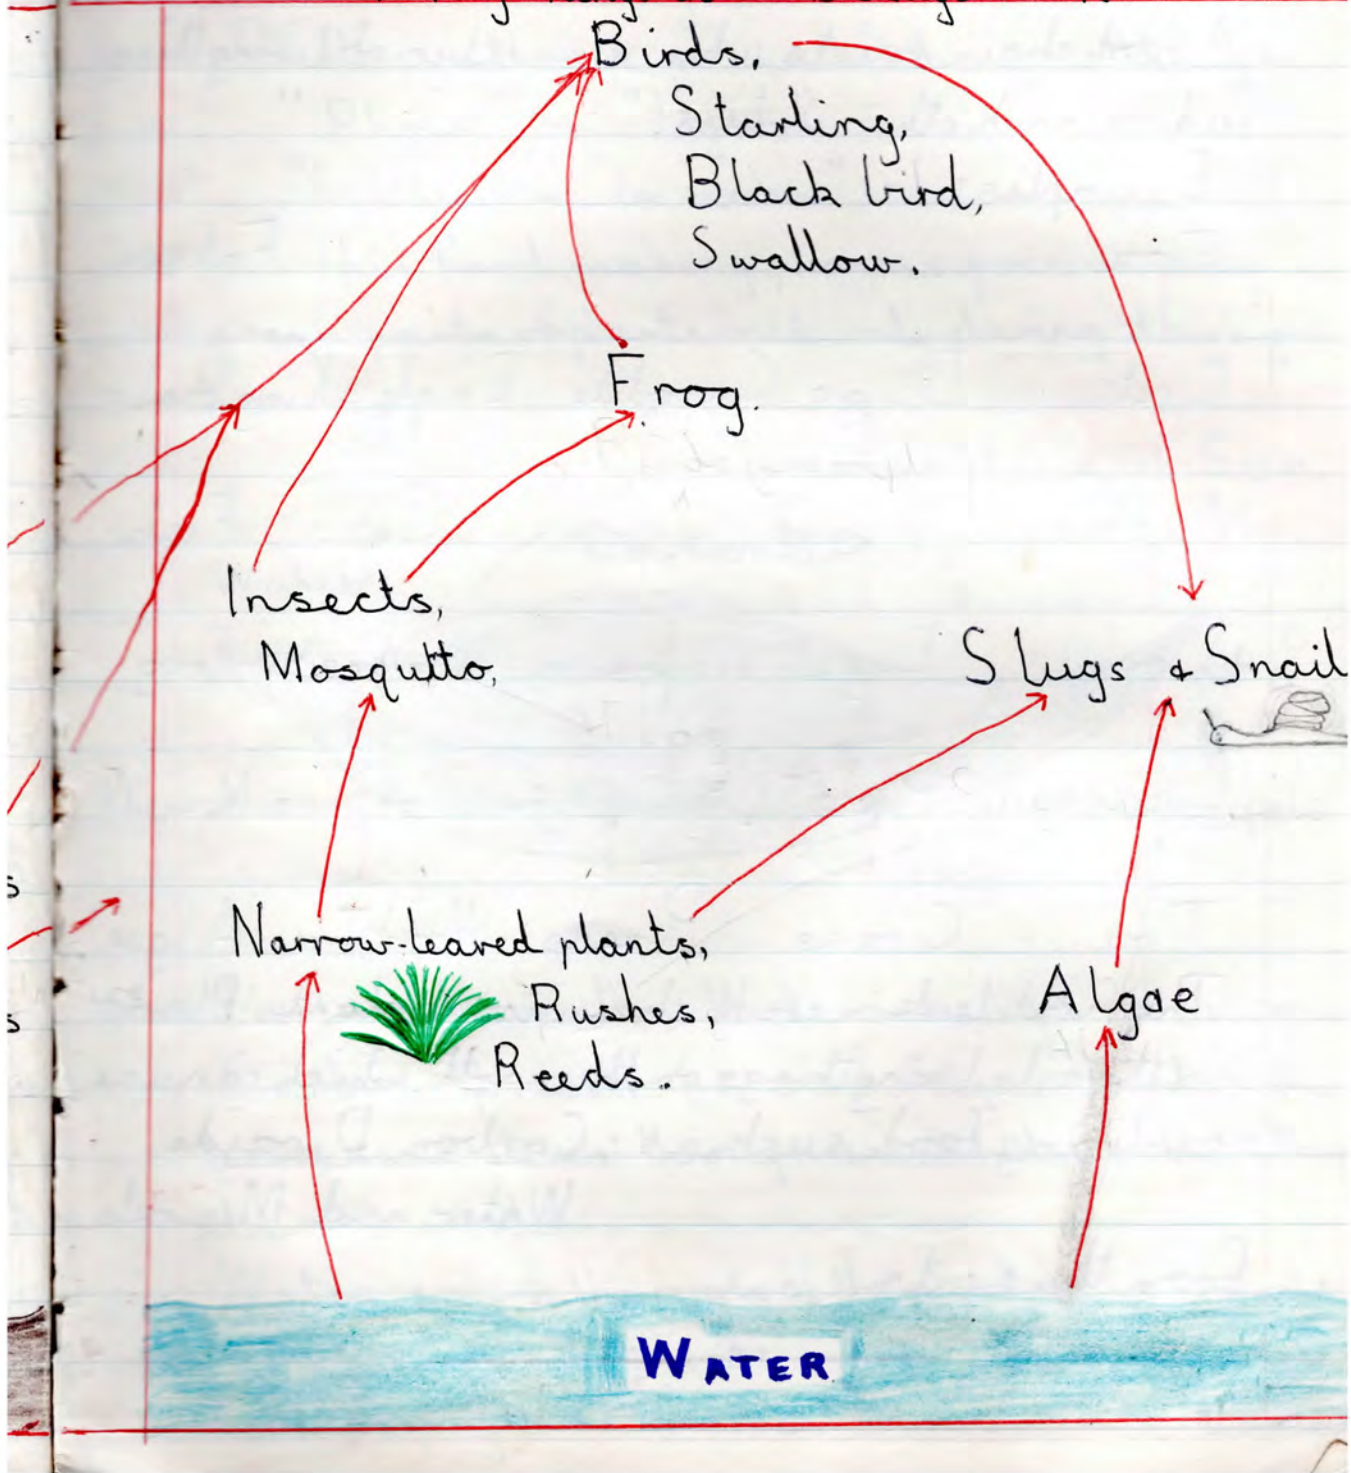 Birds.
Starling,
Black bird,
Swallow.
Frog.
Insects,
Mosquitto,
Slugs & Snail
Narrow-leaved plants,
Rushes,
Reeds.
Algae
WATER